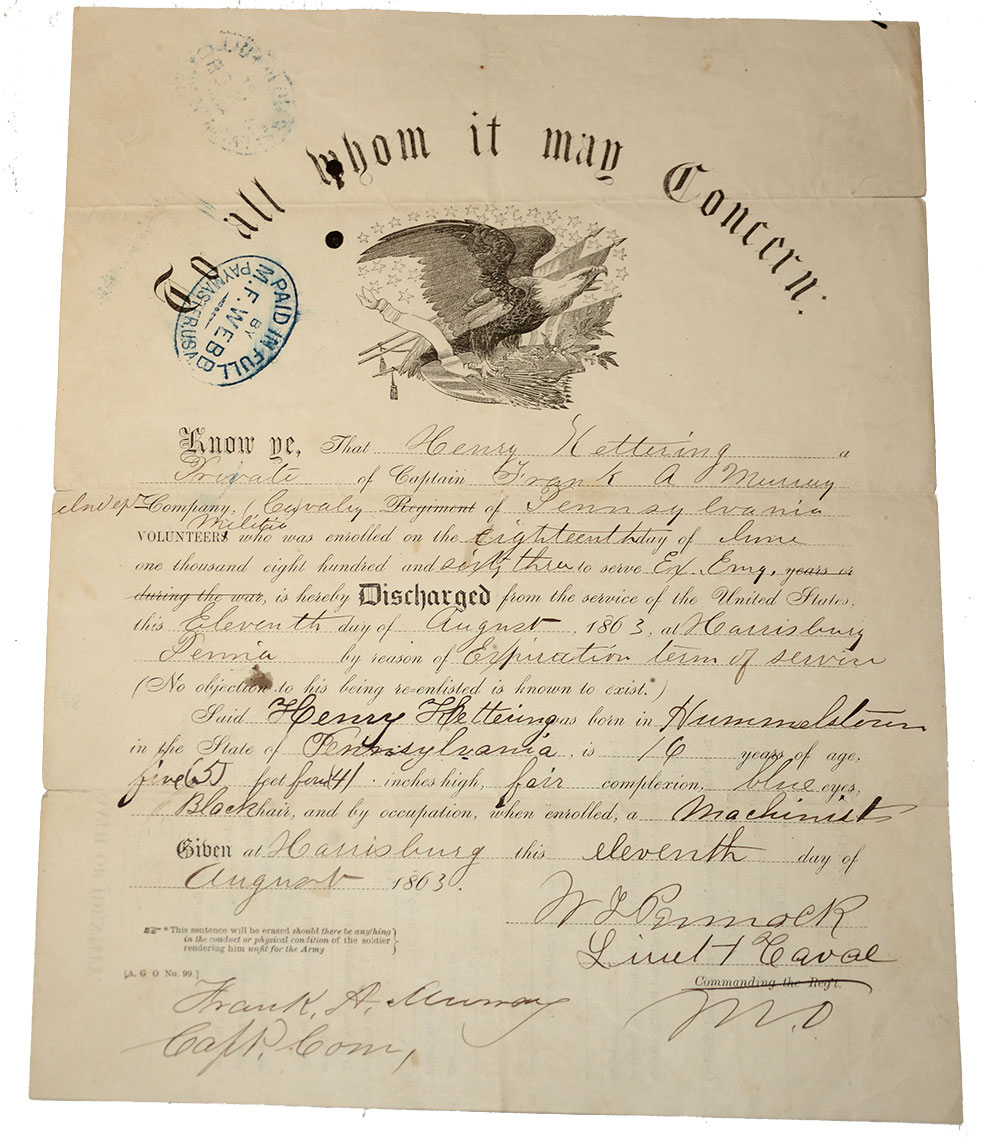 To all whom it may Concern.
PAID IN FULL
BY
M. F. WEBB
PAYMASTER U.S.A.
Know ye, That Henry Kettering a
Private of Captain Frank A Murray
Indept Company, (Cavalry Regiment of Pennsylvania
Militia
VOLUNTEERS who was enrolled on the eighteenth day of June
one thousand eight hundred and sixty three to serve Ex. Emg. years or
during the war, is hereby Discharged from the service of the United States,
this Eleventh day of August, 1863, at Harrisburg
Penna by reason of Expiration term of service
(No objection to his being re-enlisted is known to exist.*)
Said Henry Kettering was born in Hummelstown
in the State of Pennsylvania, is 16 years of age,
five (5) feet four (4) inches high, fair complexion, blue eyes,
Black hair, and by occupation, when enrolled, a Machinist
Given at Harrisburg this eleventh day of
August 1863.
W Pennock
Lieut Caval
Commanding the Reg't.
M.O
*This sentence will be erased should there be anything
in the conduct or physical condition of the soldier
rendering him unfit for the Army
[A. G O No. 99.]
Frank. A. Murray
Capt. Com,